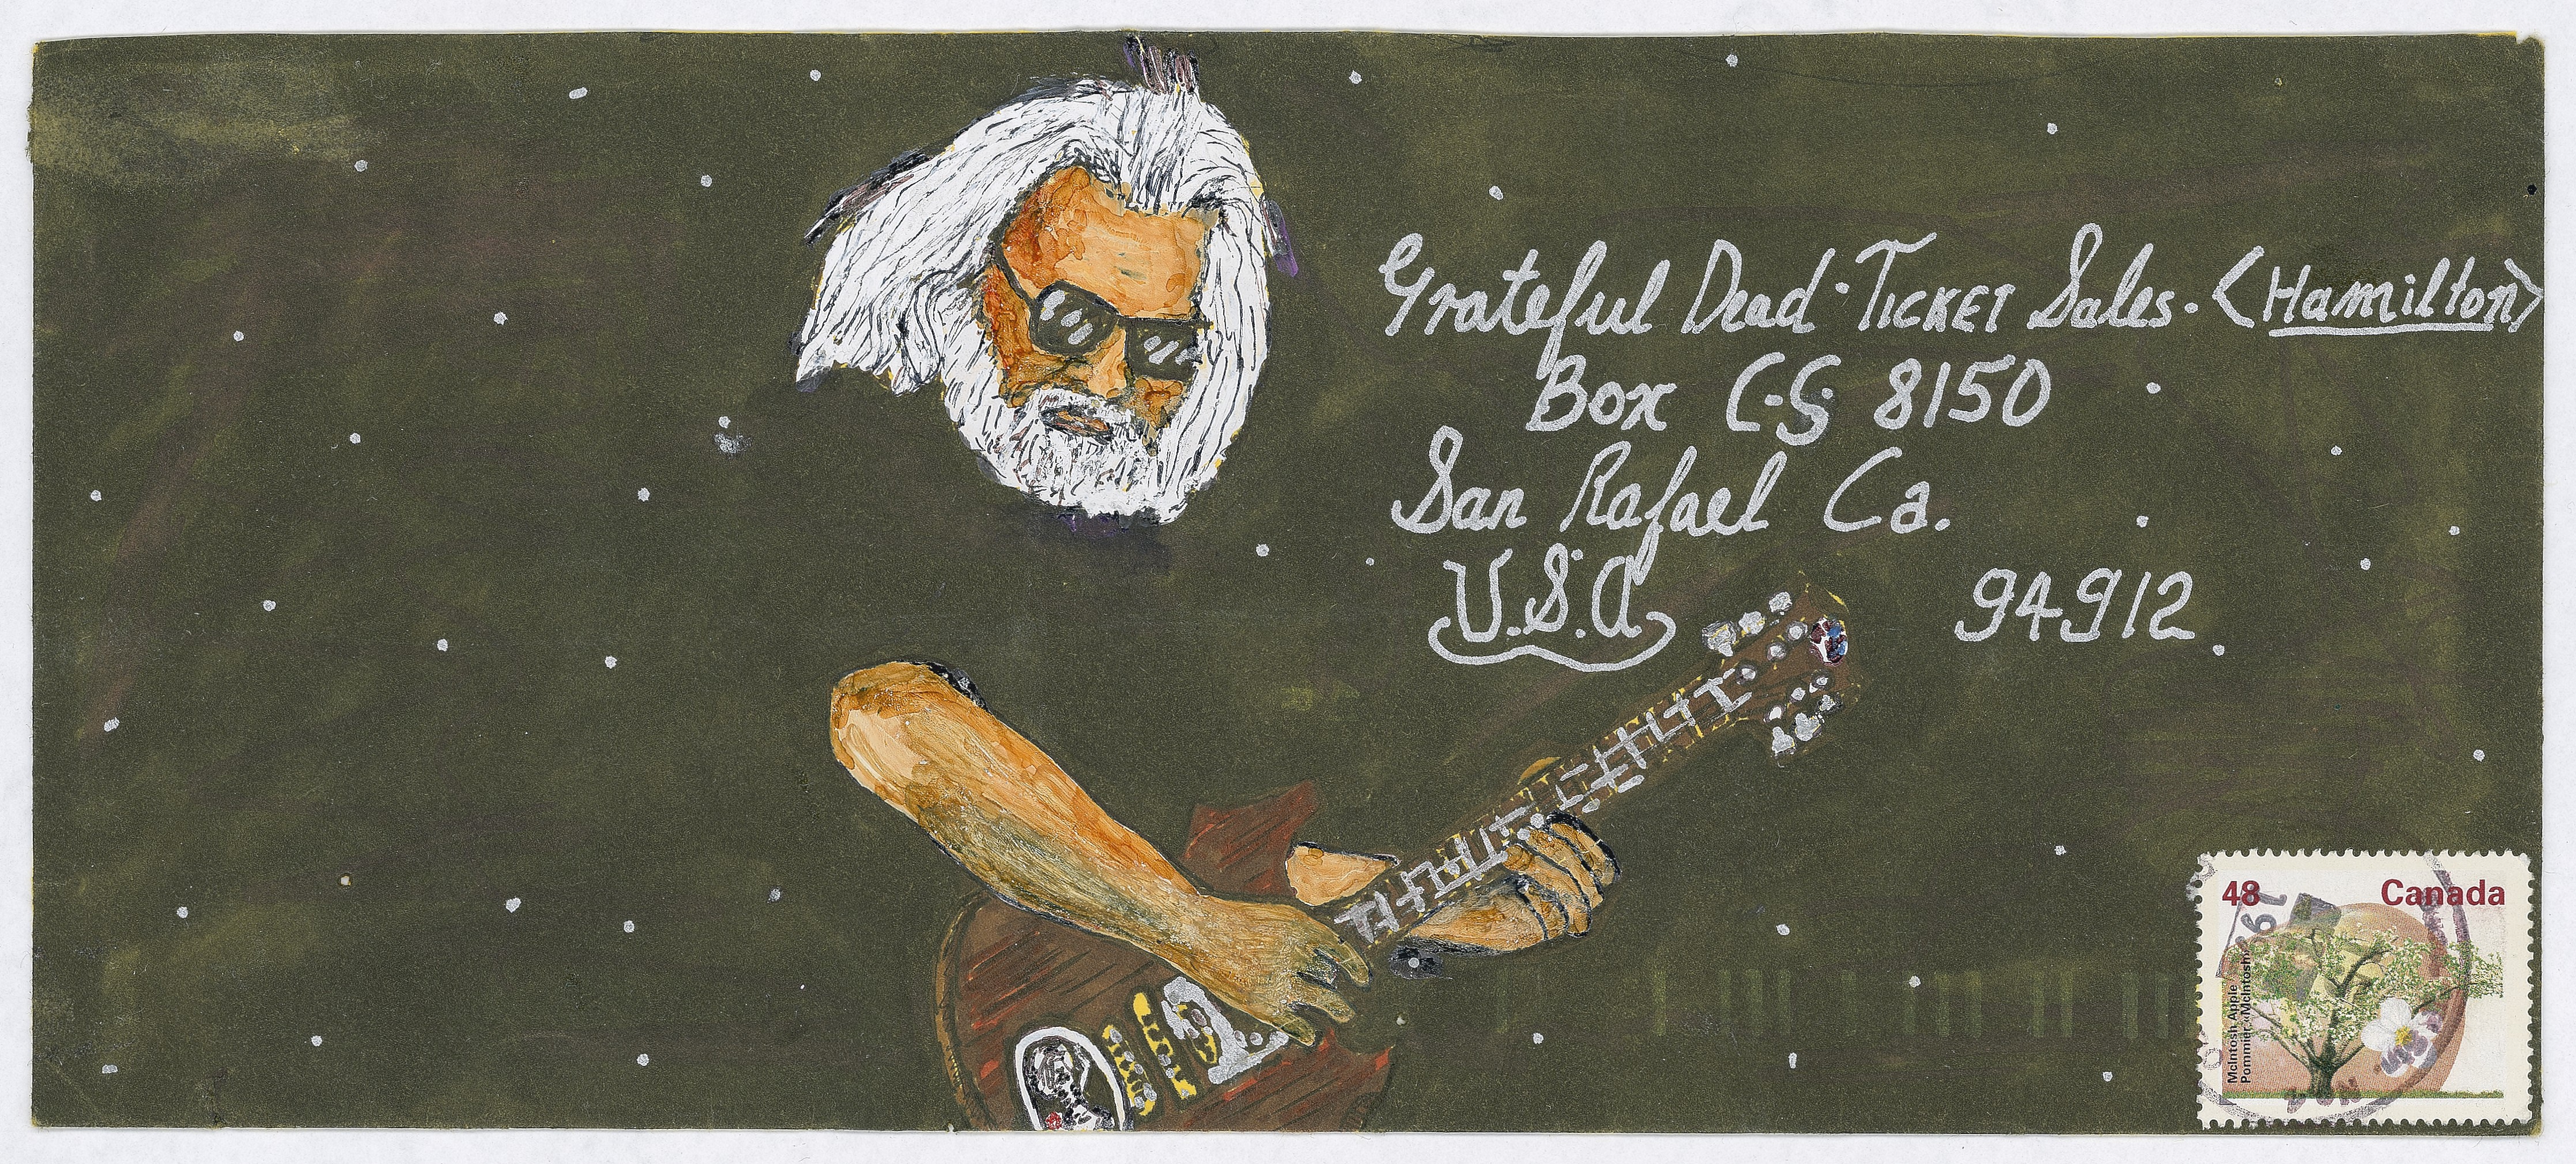 Grateful Dead · TICKET Sales · <Hamilton>
Box C·S 8150
San Rafael Ca.
U.S.A
94912
48 Canada
McIntosh Apple
Pommier «McIntosh»